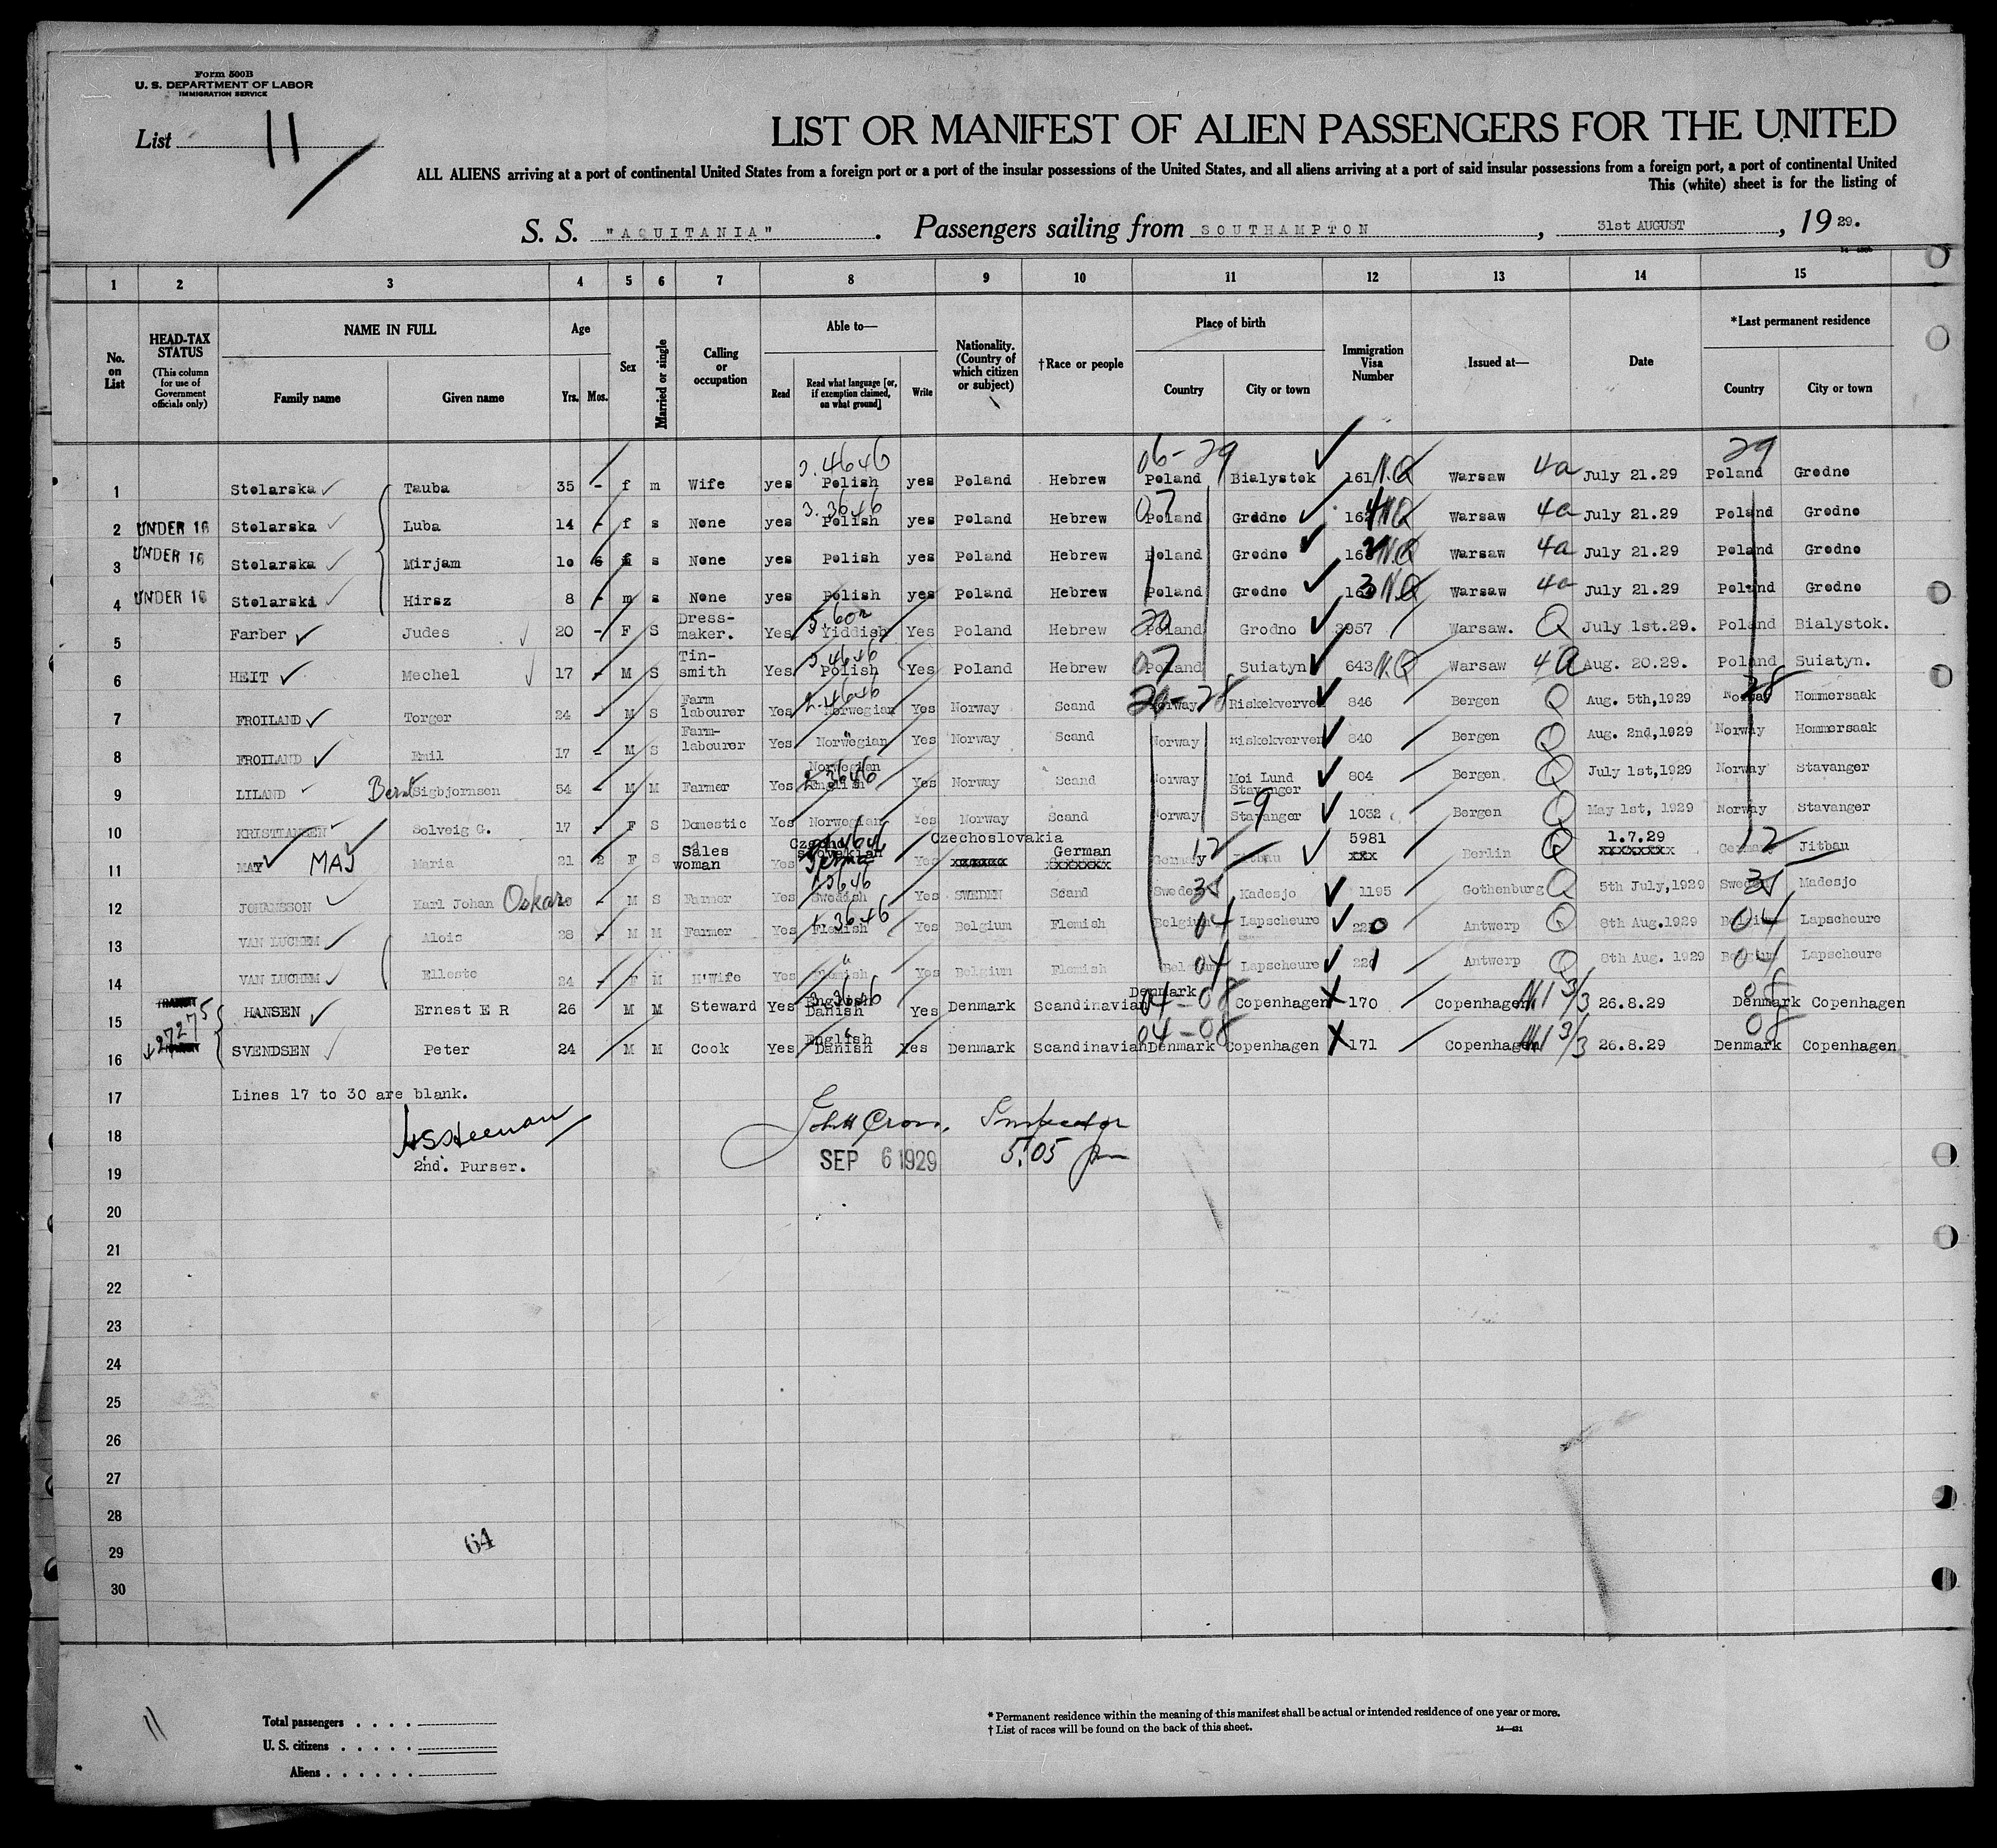 Form 500B
U. S. DEPARTMENT OF LABOR
IMMIGRATION SERVICE
List 11
LIST OR MANIFEST OF ALIEN PASSENGERS FOR THE UNITED
ALL ALIENS arriving at a port of continental United States from a foreign port or a port of the insular possessions of the United States, and all aliens arriving at a port of said insular possessions from a foreign port, a port of continental United
This (white) sheet is for the listing of
S. S. "AQUITANIA". Passengers sailing from SOUTHAMPTON, 31st AUGUST, 1929.
1 2 3 4 5 6 7 8 9 10 11 12 13 14 15
No. on List
HEAD-TAX STATUS (This column for use of Government officials only)
NAME IN FULL
Family name Given name
Age
Yrs. Mos.
Sex
Married or single
Calling or occupation
Able to—
Read Read what language [or, if exemption claimed, on what ground] Write
Nationality. (Country of which citizen or subject)
†Race or people
Place of birth
Country City or town
Immigration Visa Number
Issued at—
Date
*Last permanent residence
Country City or town
06-29 29
3.4646
1 Stolarska Tauba 35 - f m Wife yes Polish yes Poland Hebrew Poland Bialystok 161 N.Q Warsaw 4a July 21.29 Poland Grodno
3.3646 07
2 UNDER 16 Stolarska Luba 14 - f s None yes Polish yes Poland Hebrew Poland Grodno 164 NQ Warsaw 4a July 21.29 Poland Grodno
3 UNDER 16 Stolarska Mirjam 10 6 f s None yes Polish yes Poland Hebrew Poland Grodno 162 N.Q Warsaw 4a July 21.29 Poland Grodno
4 UNDER 16 Stolarski Hirsz 8 - m s None yes Polish yes Poland Hebrew Poland Grodno 163 N.Q Warsaw 4a July 21.29 Poland Grodno
5 Farber Judes 20 - F S Dress-maker. Yes Yiddish Yes Poland Hebrew Poland Grodno 3957 Warsaw. Q July 1st.29. Poland Bialystok.
3.4646 07
6 HEIT Mechel 17 - M S Tin-smith Yes Polish Yes Poland Hebrew Poland Suiatyn 643 N.Q Warsaw 4a Aug. 20.29. Poland Suiatyn.
2.4646 28
7 FROILAND Torger 24 - M S Farm labourer Yes Norwegian Yes Norway Scand Norway Riskekverven 846 Bergen Q Aug. 5th,1929 Norway Hommersaak
8 FROILAND Emil 17 - M S Farm-labourer Yes Norwegian Yes Norway Scand Norway Riskekverven 840 Bergen Q Aug. 2nd,1929 Norway Hommersaak
9 LILAND Bernt Sigbjornsen 54 - M M Farmer Yes Norwegian English Yes Norway Scand Norway Moi Lund Stavanger 804 Bergen Q July 1st,1929 Norway Stavanger
10 KRISTIANSEN Solveig G. 17 - F S Domestic Yes Norwegian Yes Norway Scand Norway Stavanger 1032 Bergen Q May 1st, 1929 Norway Stavanger
11 MAY MAJ Maria 21 2 F S Sales woman Yes Yes Czechoslovakia xxxxxxx German xxxxxxx Germany 12 Jitbau 5981 xxx Berlin Q 1.7.29 xxxxxxxx Germany 12 Jitbau
12 JOHANSSON Karl Johan Oskar - M S Farmer Yes Swedish Yes SWEDEN Scand Sweden 35 Madesjo 1195 Gothenburg Q 5th July,1929 Sweden 35 Madesjo
13 VAN LUCHEM Alois 28 - M M Farmer Yes Flemish Yes Belgium Flemish Belgium 04 Lapscheure 220 Antwerp Q 8th Aug.1929 Belgium 04 Lapscheure
14 VAN LUCHEM Elleste 24 - F M H'Wife Yes Flemish Yes Belgium Flemish Belgium 04 Lapscheure 221 Antwerp Q 8th Aug. 1929 Belgium 04 Lapscheure
15 HANSEN Ernest E R 26 M M Steward Yes English Danish Yes Denmark Scandinavian Denmark 04-08 Copenhagen 170 Copenhagen 3/3 26.8.29 Denmark 08 Copenhagen
16 SVENDSEN Peter 24 M M Cook Yes English Danish Yes Denmark Scandinavian Denmark 04-08 Copenhagen 171 Copenhagen 3/3 26.8.29 Denmark 08 Copenhagen
17 Lines 17 to 30 are blank.
18 John Cross, Inspector
19 2nd. Purser. SEP 6 1929 5.05 pm
20
21
22
23
24
25
26
27
28
64
29
30
11
Total passengers . . . .
U. S. citizens . . . . .
Aliens . . . . . .
* Permanent residence within the meaning of this manifest shall be actual or intended residence of one year or more.
† List of races will be found on the back of this sheet. 14—421